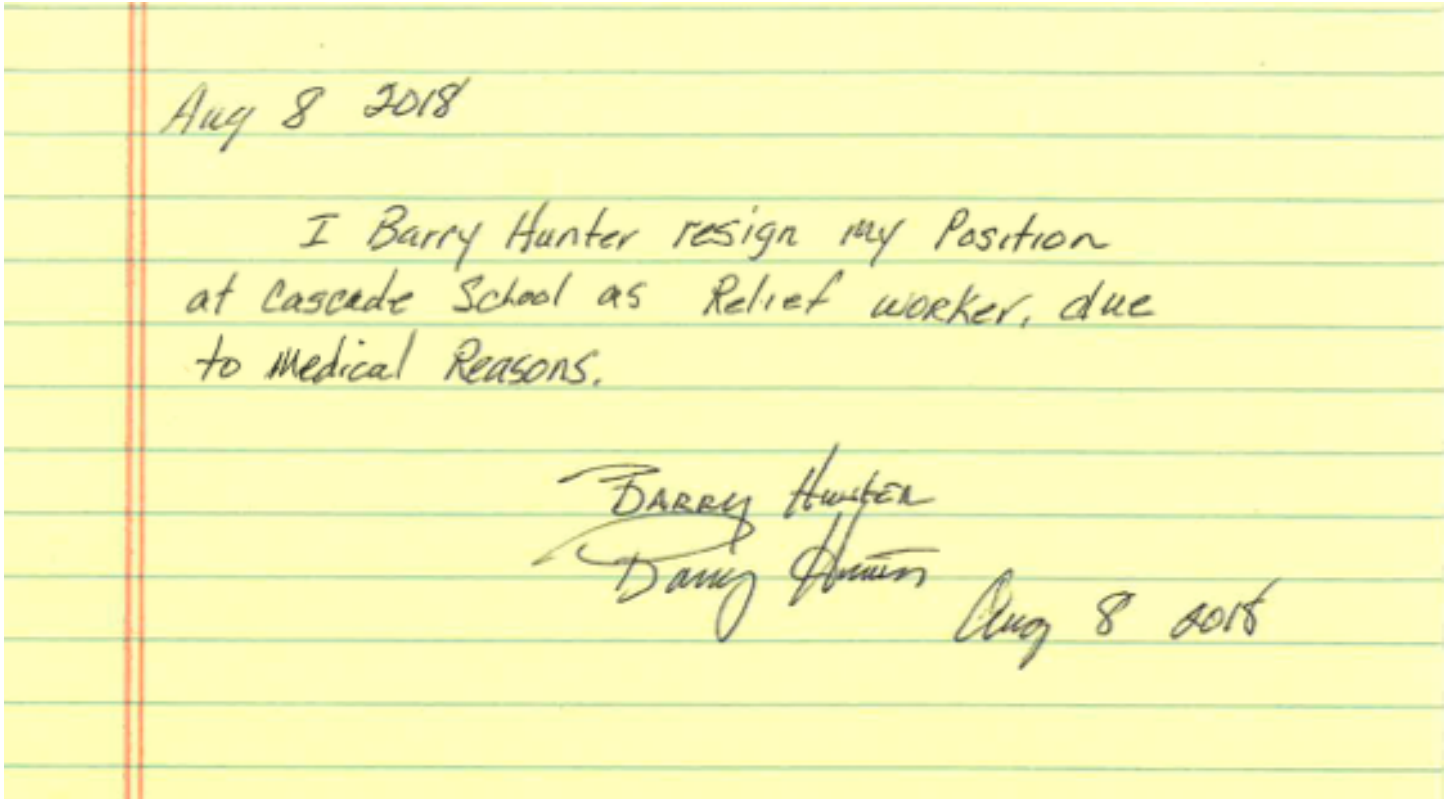 Aug 8 2018
I Barry Hunter resign my Position
at Cascade School as Relief worker, due
to Medical Reasons.
Barry Hunter
Barry Hunter
Aug 8 2018